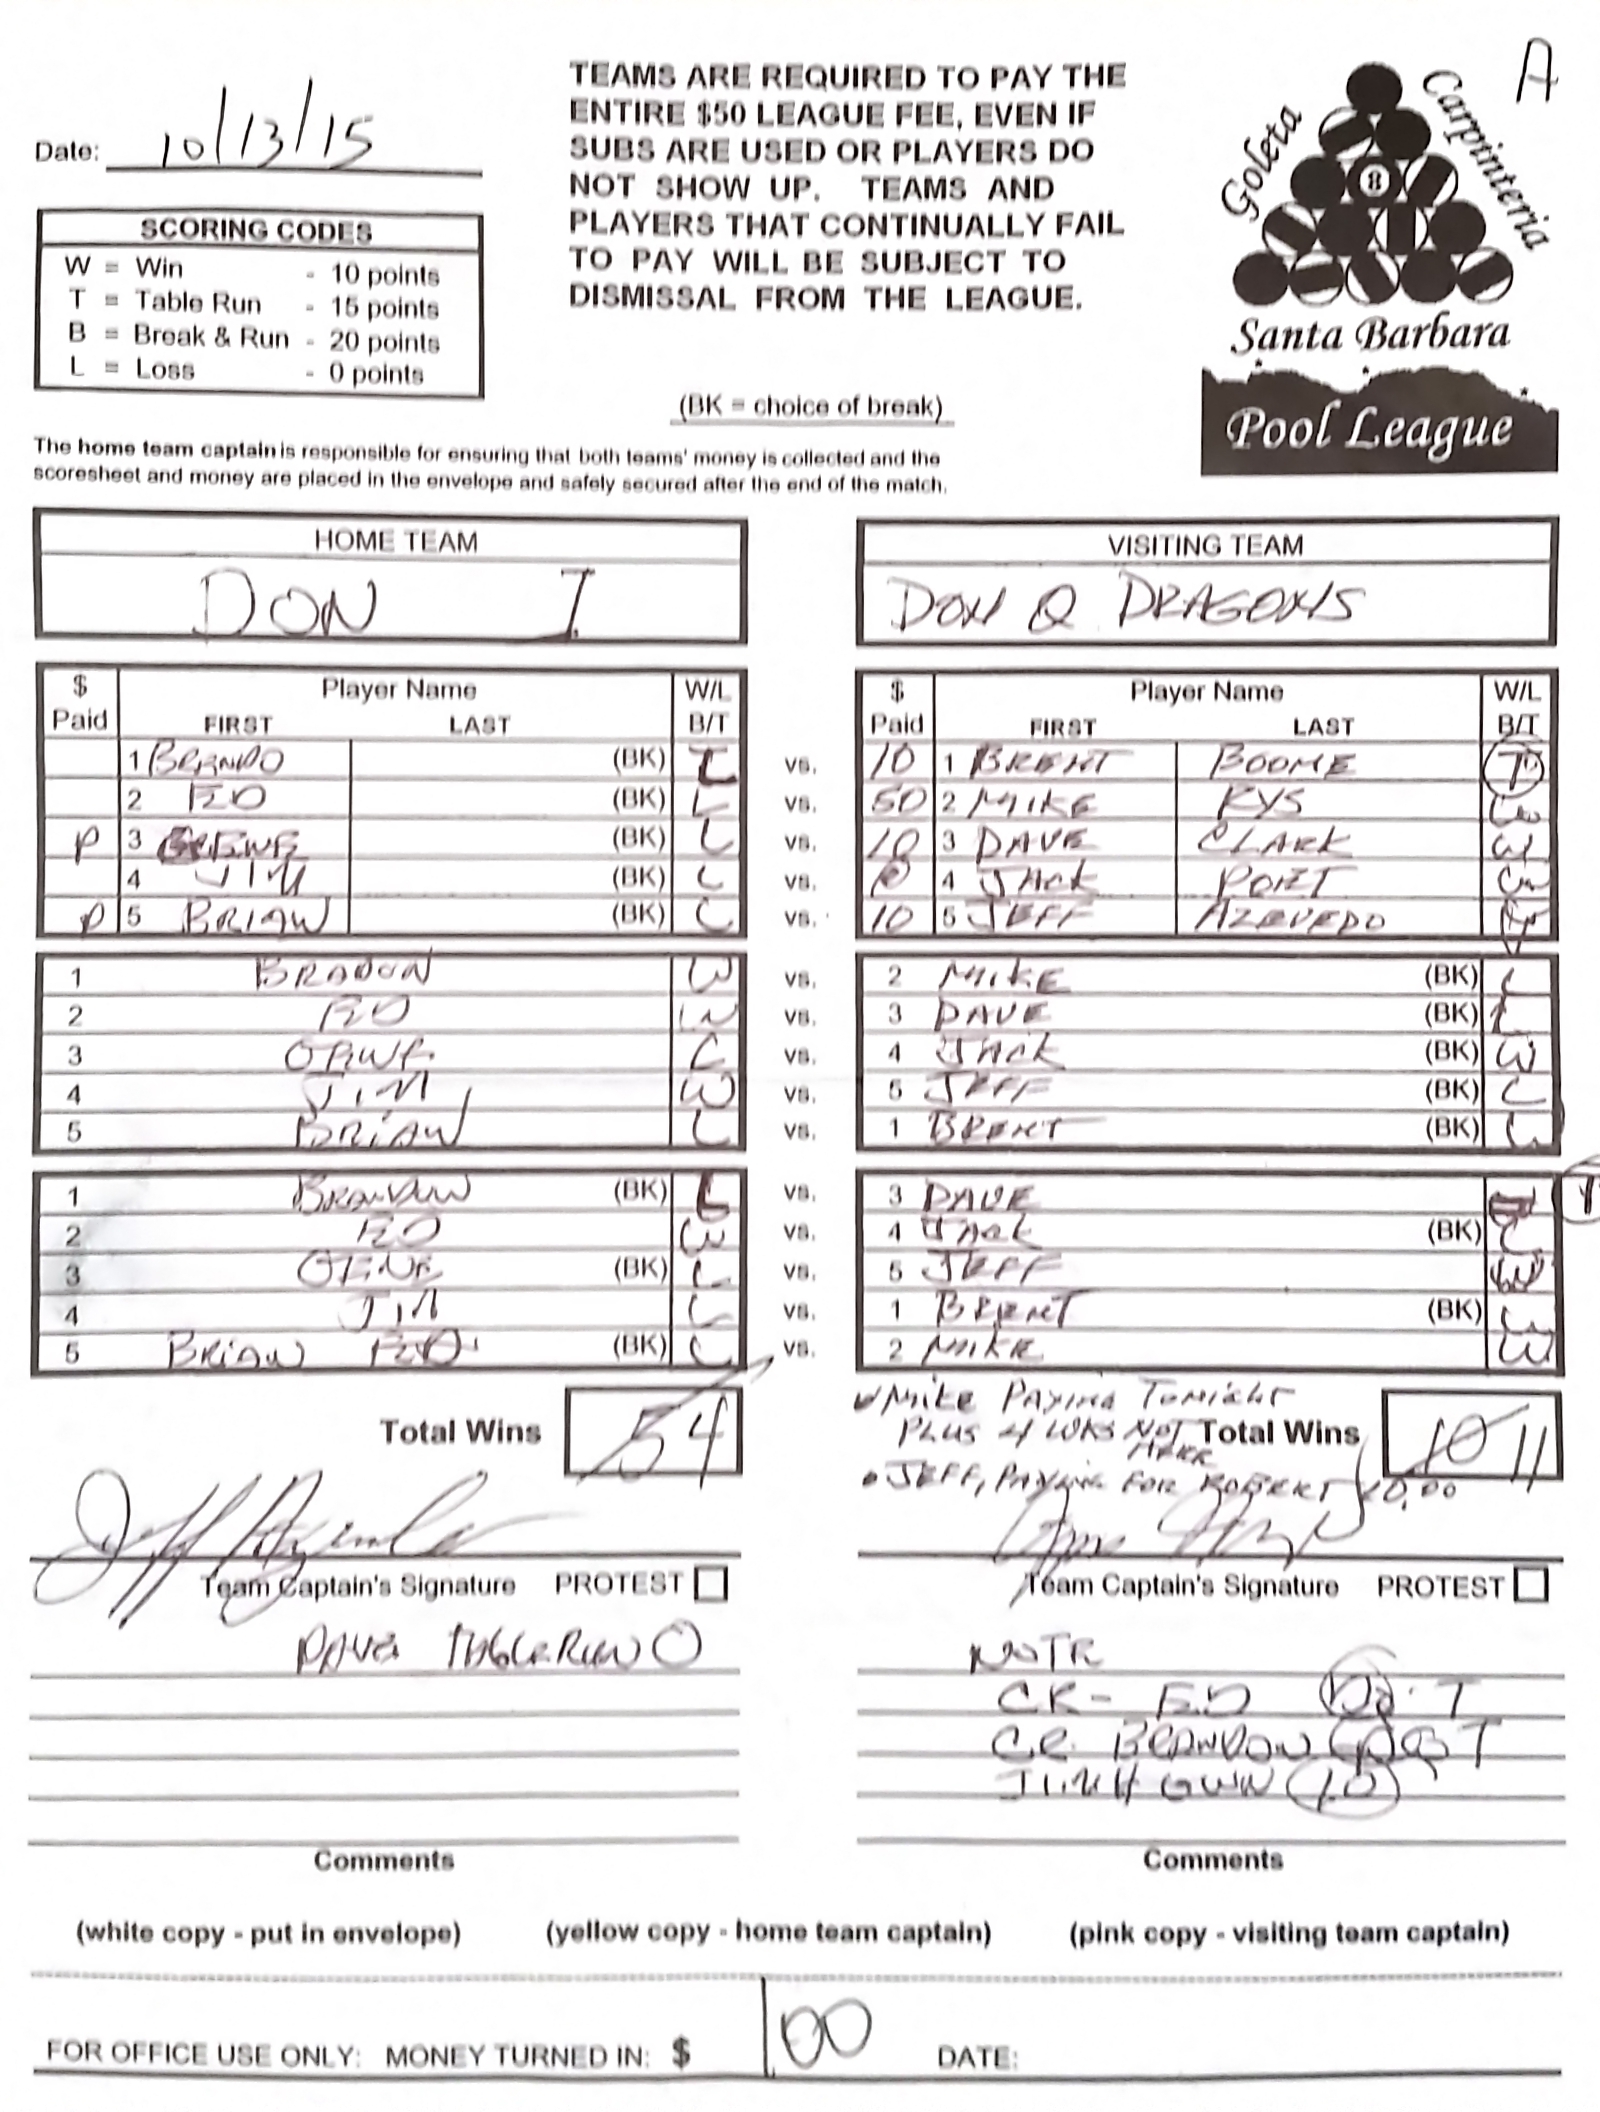 A
Date: 10/13/15
TEAMS ARE REQUIRED TO PAY THE
ENTIRE $50 LEAGUE FEE, EVEN IF
SUBS ARE USED OR PLAYERS DO
NOT SHOW UP. TEAMS AND
PLAYERS THAT CONTINUALLY FAIL
TO PAY WILL BE SUBJECT TO
DISMISSAL FROM THE LEAGUE.
(BK = choice of break)
Goleta
Carpinteria
8
Santa Barbara
Pool League
SCORING CODES
W = Win - 10 points
T = Table Run - 15 points
B = Break & Run - 20 points
L = Loss - 0 points
The home team captain is responsible for ensuring that both teams' money is collected and the
scoresheet and money are placed in the envelope and safely secured after the end of the match.
HOME TEAM
DON I
VISITING TEAM
DON Q DRAGONS
$ Paid Player Name FIRST LAST W/L B/T
$ Paid Player Name FIRST LAST W/L B/T
1 (BK) L vs. 10 1 BRENT BOONE T
2 ED (BK) L vs. 50 2 MIKE KYS W
P 3 (BK) L vs. 10 3 DAVE CLARK W
4 JIM (BK) L vs. 4 JACK PORT W
P 5 BRIAN (BK) L vs. 10 5 JEFF AZEVEDO
1 BRADON W vs. 2 MIKE (BK) L
2 ED W vs. 3 DAVE (BK) L
3 L vs. 4 JACK (BK) W
4 JIM W vs. 5 JEFF (BK) L
5 BRIAN L vs. 1 BRENT (BK)
1 BRANDON (BK) L vs. 3 DAVE T
2 ED W vs. 4 JACK (BK) L
3 (BK) L vs. 5 JEFF W
4 JIM L vs. 1 BRENT (BK)
5 BRIAN (BK) L vs. 2 MIKE W
Total Wins 5 4
MIKE PAYING TONIGHT
PLUS 4 WKS NOT HERE
Total Wins 10 11
JEFF, PAYING FOR ROBERT
Team Captain's Signature PROTEST
Team Captain's Signature PROTEST
DAVE TABLE RUN
NOTE
CK - ED T
BRANDON T
Comments
Comments
(white copy - put in envelope) (yellow copy - home team captain) (pink copy - visiting team captain)
FOR OFFICE USE ONLY: MONEY TURNED IN: $ 100 DATE: